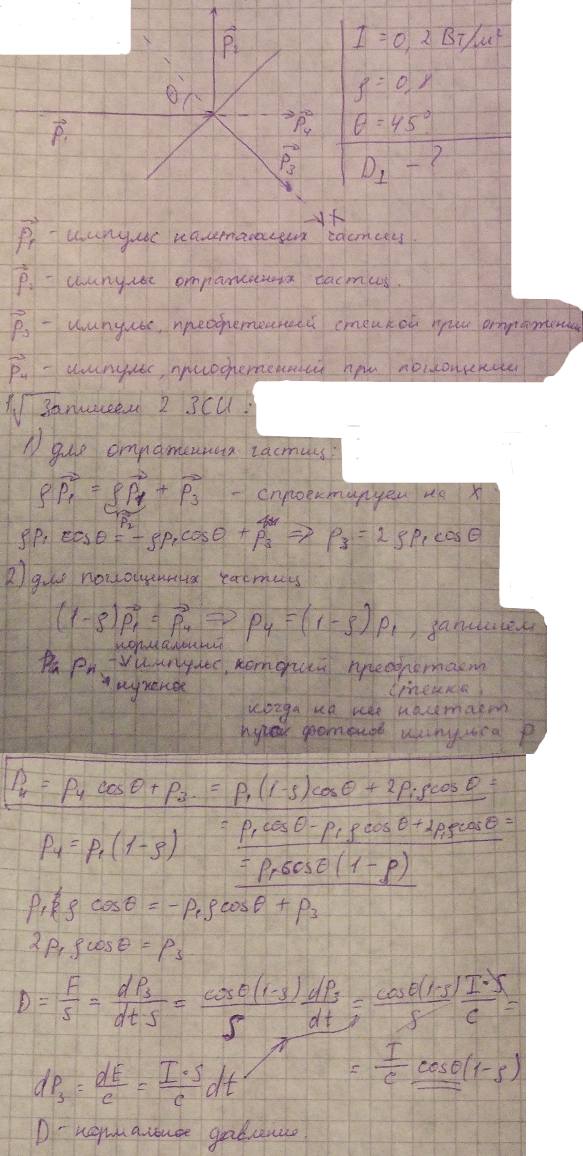 p⃗₂
θ
p⃗₁
p⃗₄
p⃗₃
x
I = 0,2 Вт/м²
ρ = 0,8
θ = 45°
D_I - ?
p⃗₁ - импульс налетающих частиц.
p⃗₂ - импульс отраженных частиц.
p⃗₃ - импульс, преобретенный стенкой при отражении
p⃗₄ - импульс, приобретенный при поглощении
Запишем 2 ЗСИ:
1) для отраженных частиц:
ρp⃗₁ = ρp⃗₁ + p⃗₃ - спроектируем на x
p⃗₂
ρp₁ cosθ = -ρp₁cosθ + p₃ => p₃ = 2ρp₁cosθ
2) для поглощенных частиц
(1-ρ)p⃗₁ = p⃗₄ => p₄ = (1-ρ)p₁, запишем
нормальный
pₙ - импульс, который преобретает
нужное стенка,
когда на нее налетает
пучок фотонов импульса p
pₙ = p₄ cosθ + p₃ = p₁(1-ρ)cosθ + 2p₁ρcosθ =
= p₁cosθ - p₁ρcosθ + 2p₁ρcosθ =
p₄ = p₁(1-ρ)
= p₁cosθ(1-ρ)
p₁ρ cosθ = -p₁ρcosθ + p₃
2p₁ρcosθ = p₃
D = F/S = dP₃/dt·S = cosθ(1-ρ)/S dP₃/dt = cosθ(1-ρ)/S I·S/c =
= I/c cosθ(1-ρ)
dP₃ = dE/c = I·S/c dt
D - нормальное давление.